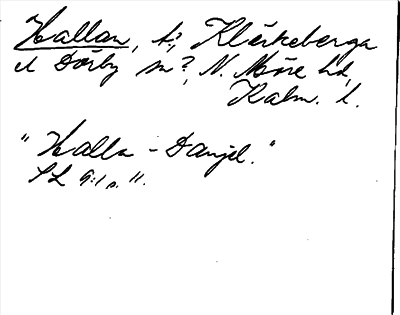 Hallan, t.; Kläckeberga
el Dörby sn?, N. Möre hd,
Kalm. l.
"Halla-Danjel."
SL 9:1 s. 11.